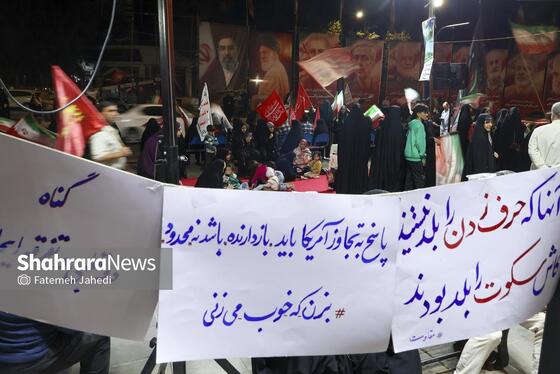 گناه
پاسخ به تجاوز آمریکا باید بازدارنده باشد نه محدود
# بزن که خوب می‌زنی
آنها که حرف زدن را بلد نیستند
کاش سکوت را بلد بودند
# مقاومت
ShahraraNews
Fatemeh Jahedi